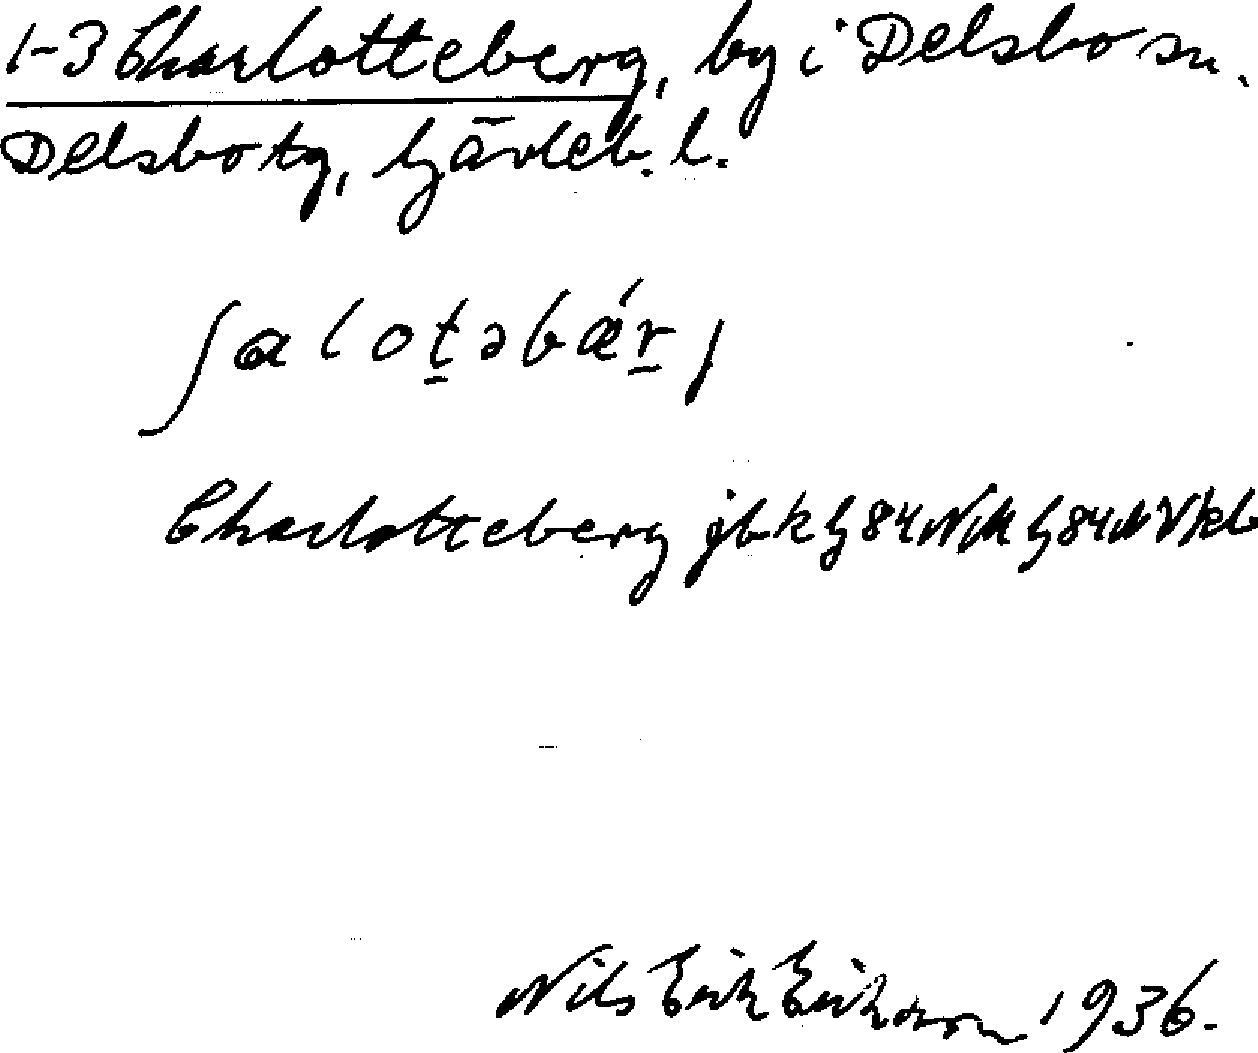 1-3 Charlotteberg, by i Delsbo sn.
Delsbo tg, Gävleb. l.
ʃalot̲əbǽr̲j
Charlotteberg jbk G 84 NM G 84 N V
Nils Erik Eriksson 1936.